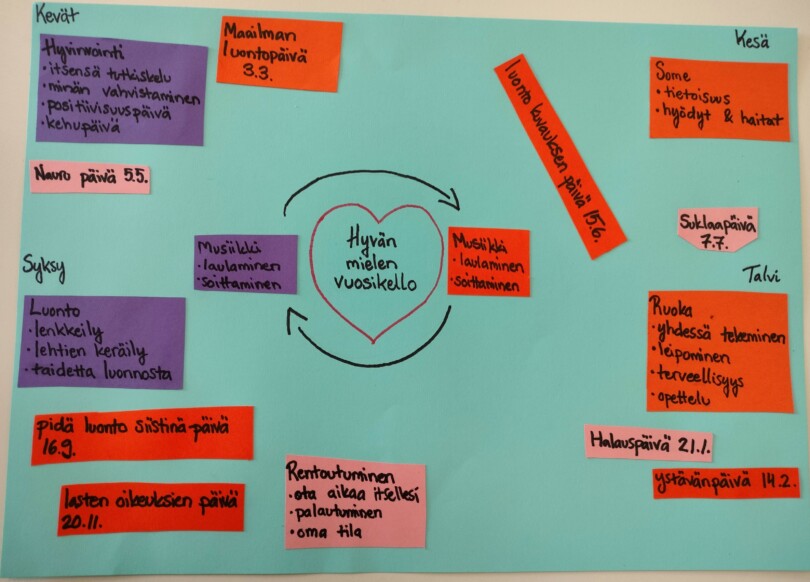 Kevät
Hyvinvointi
• itsensä tutkiskelu
• minän vahvistaminen
• positiivisuuspäivä
• kehupäivä
Maailman
luontopäivä
3.3.
Nauru päivä 5.5.
luonto kuvauksen päivä 15.6.
Kesä
Some
• tietoisuus
• hyödyt & haitat
Suklaapäivä
7.7.
Musiikki
• laulaminen
• soittaminen
Hyvän
mielen
vuosikello
Musiikki
• laulaminen
• soittaminen
Syksy
Luonto
• lenkkeily
• lehtien keräily
• taidetta luonnosta
pidä luonto siistinä-päivä
16.9.
lasten oikeuksien päivä
20.11.
Rentoutuminen
• ota aikaa itsellesi
• palautuminen
• oma tila
Talvi
Ruoka
• yhdessä tekeminen
• leipominen
• terveellisyys
• opettelu
Halauspäivä 21.1.
ystävänpäivä 14.2.